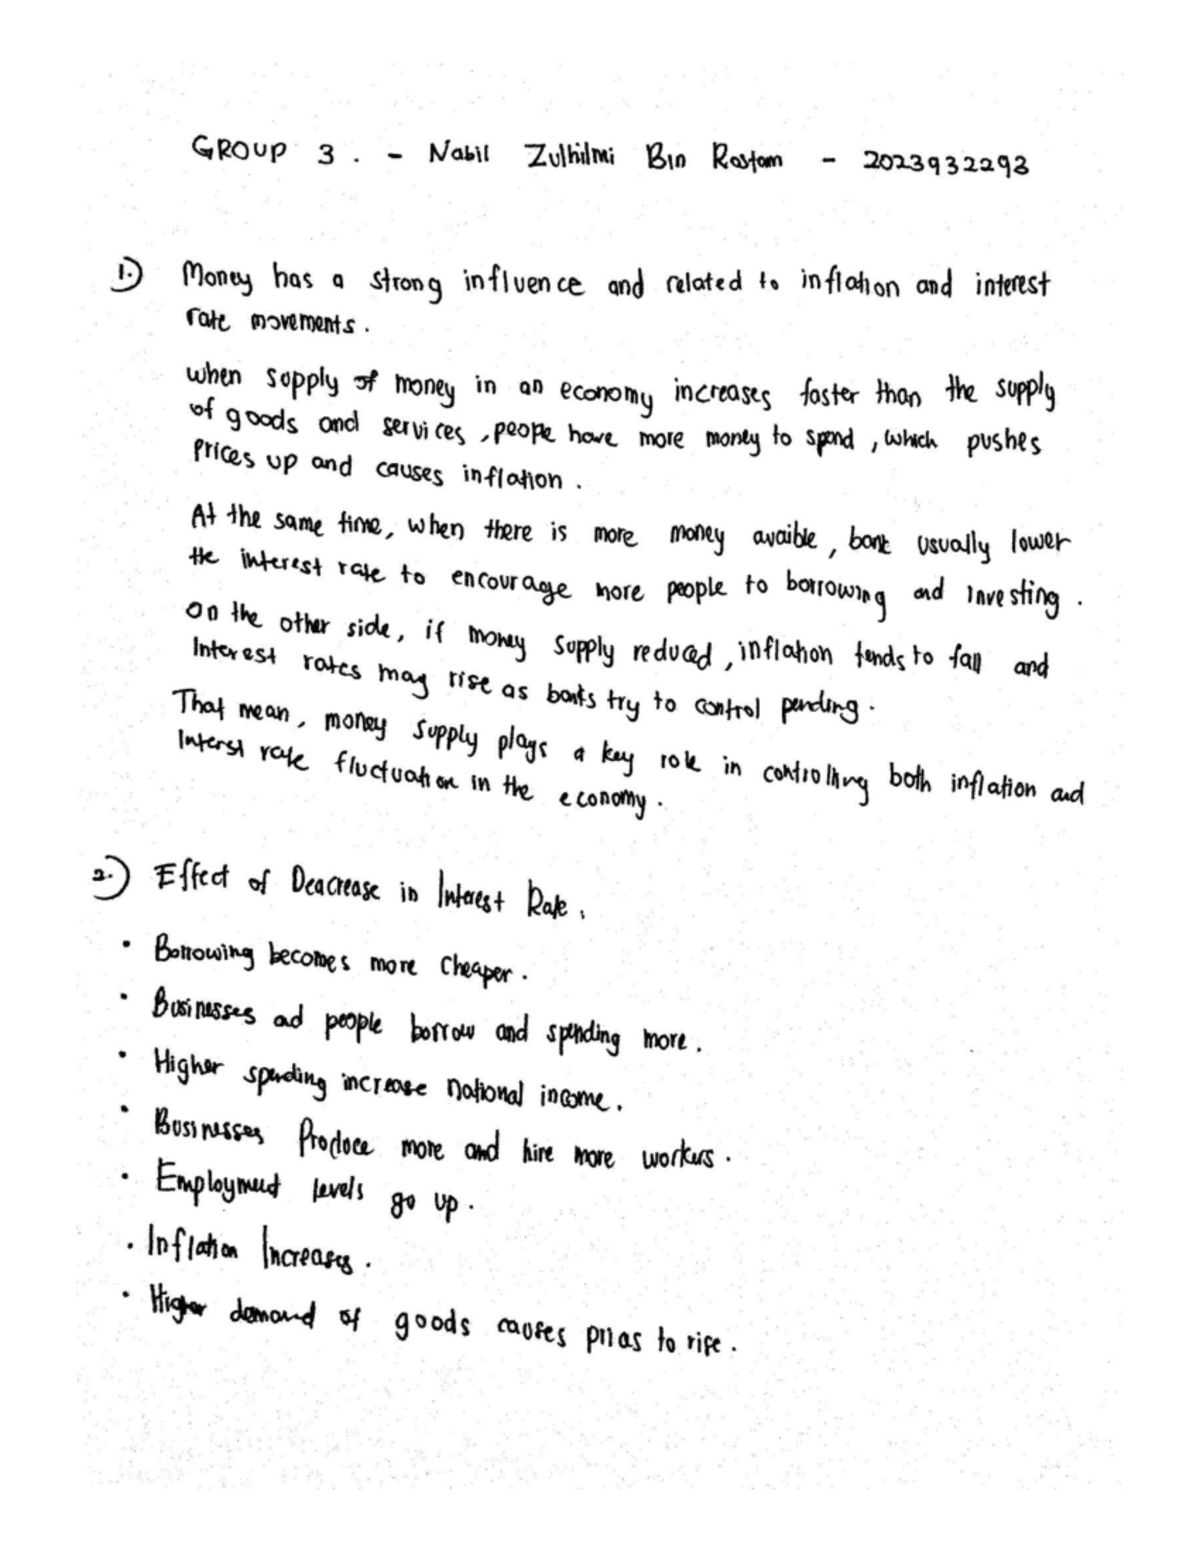 GROUP 3 . - Nabil Zulhilmi Bin Rostam - 2023932293
1.) Money has a strong influence and related to inflation and interest
rate movements.
when supply of money in an economy increases faster than the supply
of goods and services, people have more money to spend, which pushes
Prices up and causes inflation.
At the same time, when there is more money avaible, bank usually lower
the interest rate to encourage more people to borrowing and investing.
On the other side, if money supply reduced, inflation tends to fall and
Interest rates may rise as banks try to control pending.
That mean, money supply plays a key role in controlling both inflation and
Interst rate fluctuation in the economy.
2.) Effect of Deacrease in Interest Rate.
• Borrowing becomes more cheaper.
• Businesses and people borrow and spending more.
• Higher spending increase national income.
• Businesses Produce more and hire more workers.
• Employment levels go up.
• Inflation Increases.
• Higher demand of goods causes prices to rise.